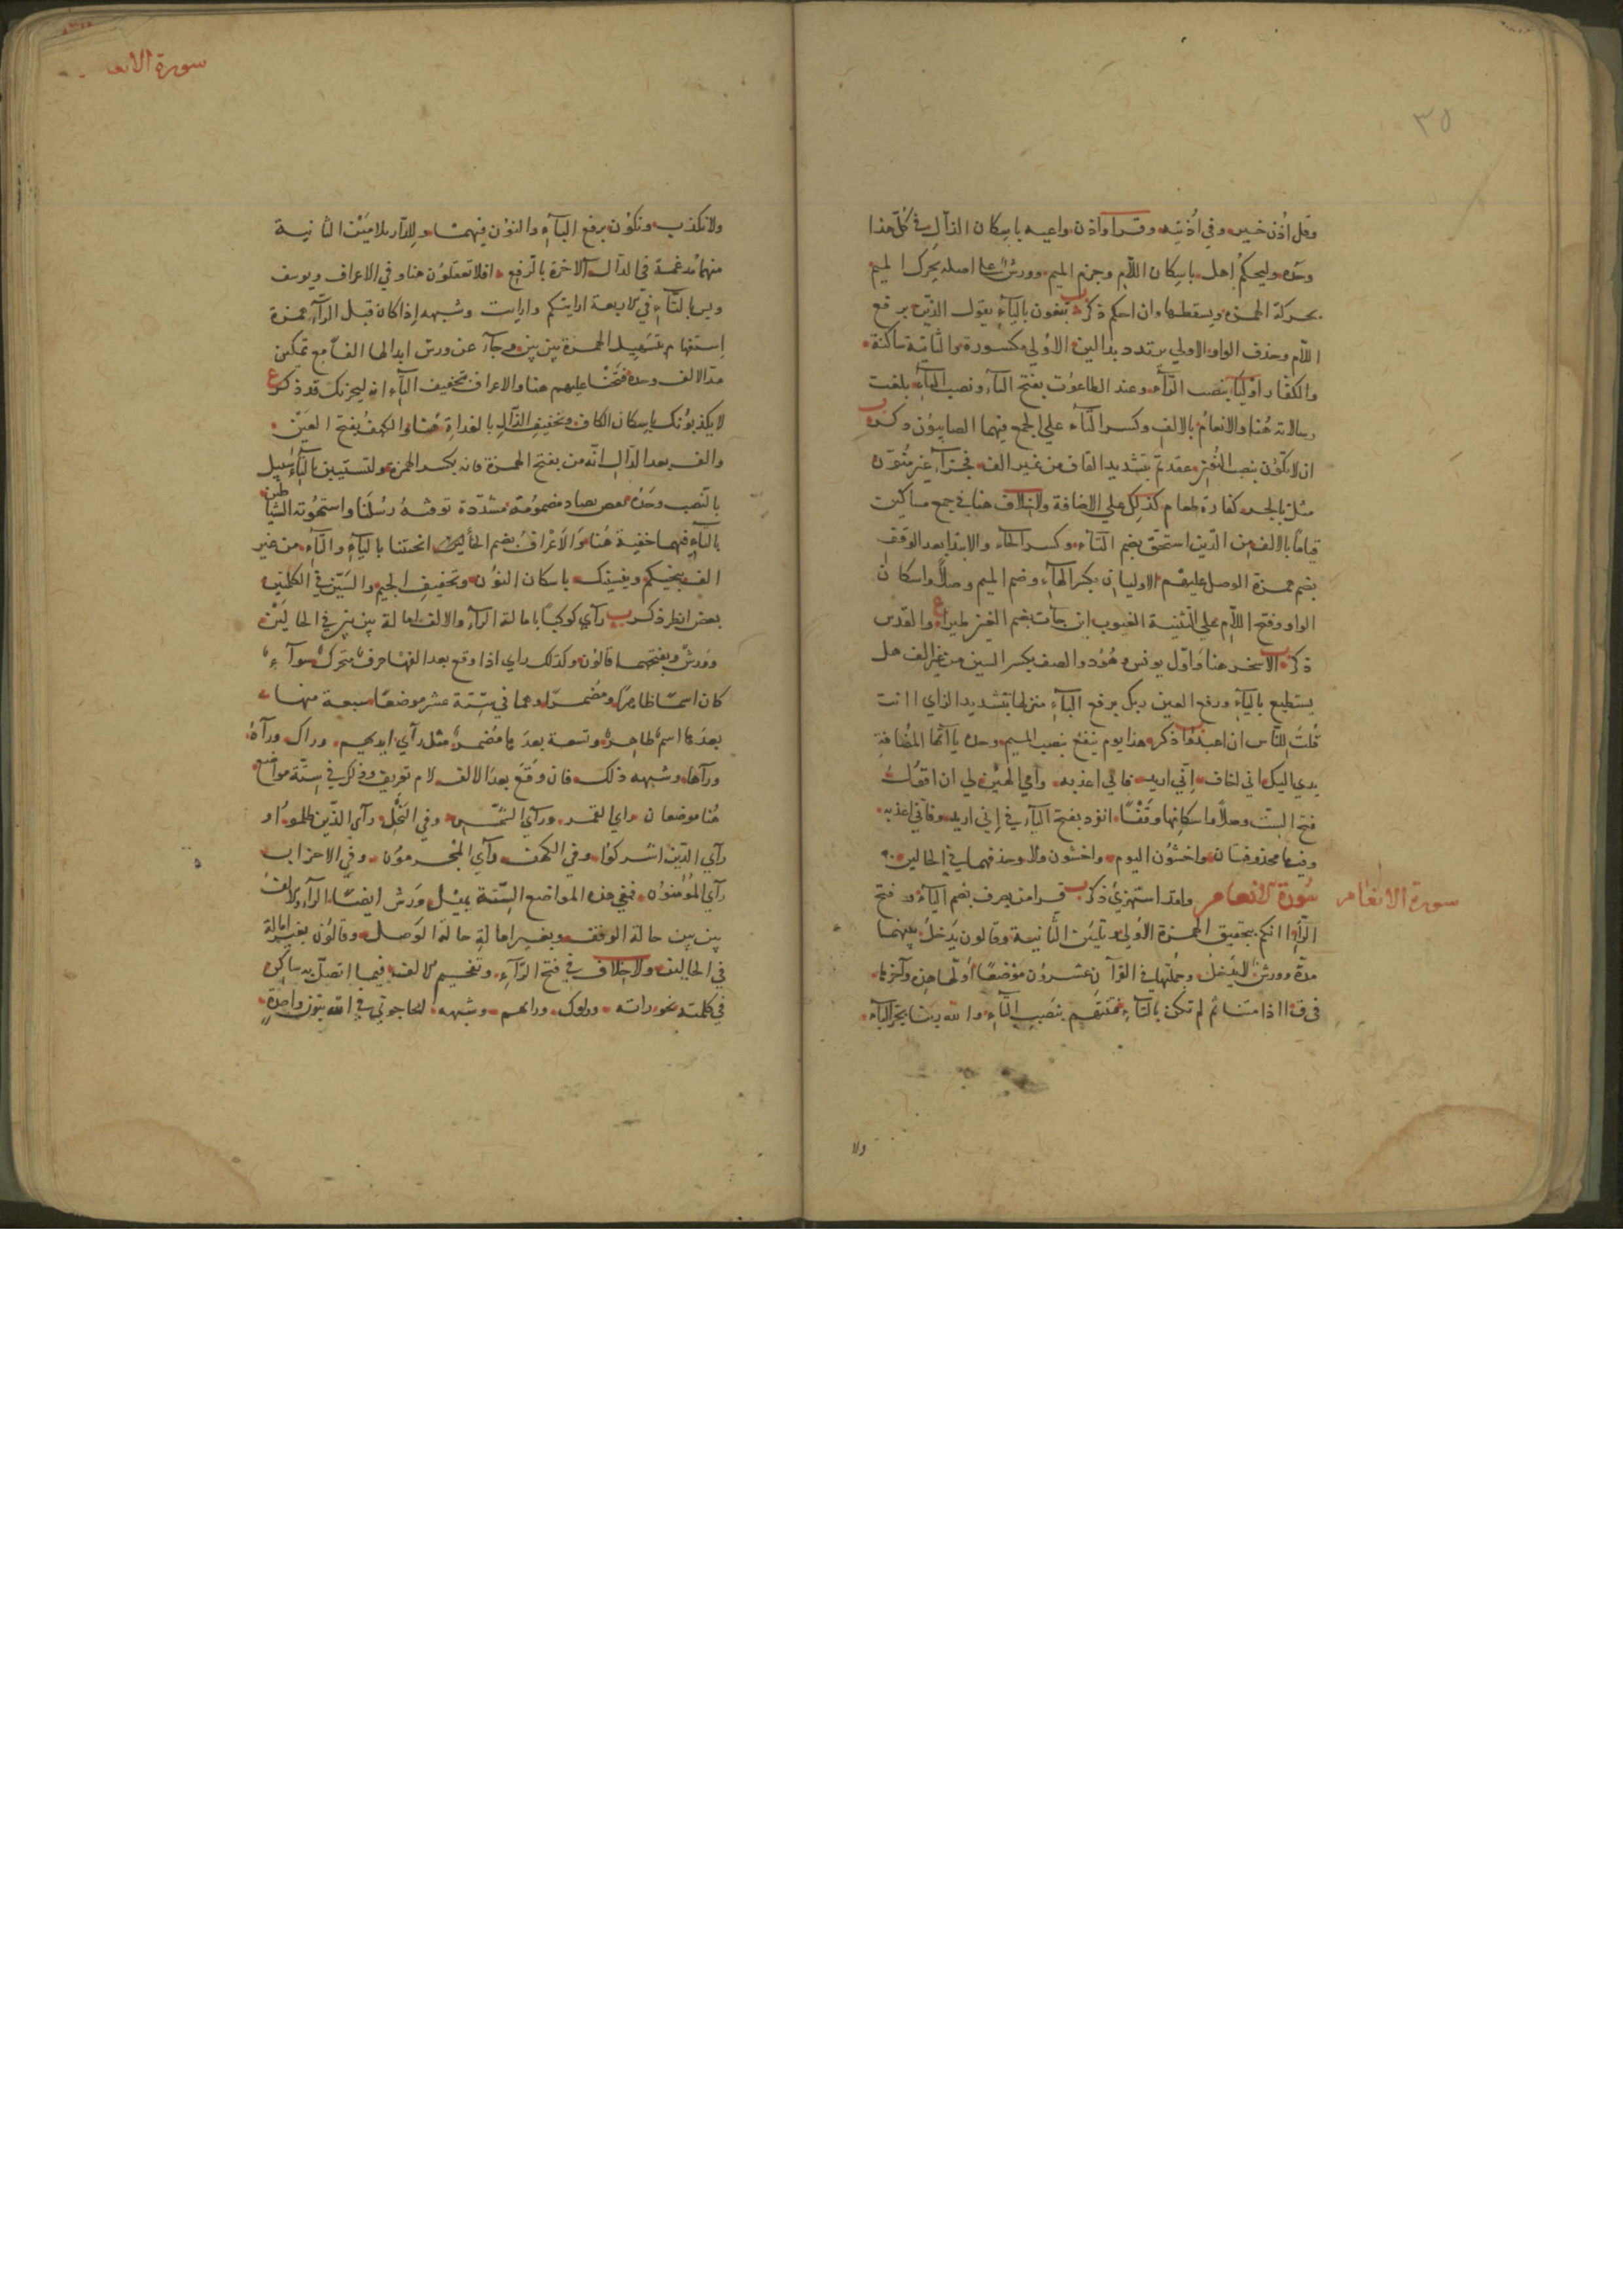 ٣٥
وقل اذن خير وفي اُذنيه وقرا واذن واعيه باسكان الذال في كُلّ هذا
وحده وليحكم اهل باسكان اللام وجزم الميم وورش على اصله يحرك الميم
بحركة الهمزه ويسقطها وان احكم ذكر تبغون بالياء يقول الذين برفع
اللام وحذف الواو الاولي يرتدد بدالين الاولي مكسورة والثانية ساكنة
والكفار اولياء بنصب الراء وعبد الطاغوت بفتح الباء ونصب التاء بلغت
رسالاته هُنا والانعام بالالف وكسر التاء علي الجمع فيهما الصابيون ذكره
ان لا تكون بنصب النون عقدتم بتشديد القاف من غير الف فجزاء غير منون
مثل بالجر كفارة طعام كذلك علي الاضافة ولا خلاف هنا في جمع مساكين
قياما بالالف من الذين استحق بضم التاء وكسر الحاء والابتدا بعد الوقف
بضم همزة الوصل عليهم الاوليان بكسر الهاء وضم الميم وصلا واسكان
الواو وفتح اللام علي التثنية الغيوب اين جات بضم الغين طيرا والقدس
ذكر الا سحر هنا واول يونس وهُود والصف بكسر السين من غير الف هل
يستطيع بالياء ورفع العين ربك برفع الباء منزلها بتشديد الزاي اانت
قُلت للناس ان اعبدوا ذكر هذا يوم ينفع بنصب الميم وحده ياآتها المُضافة
يدي اليك اني اخاف اني اريد فاني اعذبه وامي الهين لي ان اقول
فتح الست وصلا واسكانها وقفا انفرد بفتح الياء في اني اريد وفاني اعذبه
وفيها محذوفتان واخشون اليوم واخشون ولا وحذفهما في الحالين
سورة الانعام
سورة الانعام ولقد استهزي ذكر قرا من يصرف بضم الياء وفتح
الراء اانكم بتحقيق الهمزة الاولي وتليين الثانية وقالون يدخل بينهما
مدة وورش لا يُدخل وجملتها في القرآن عشرون موضعًا اولها هذه وآخرها
في ق ااذا متنا ثم لم تكن بالتاء فتنتهم بنصب التاء والله ربنا بجر الباء
ولا
سورة الانعا
ولا نكذب ونكون برفع الباء والنون فيهما وللدار بلامين الثانية
منهما مدغمة في الدال الآخرة بالرفع افلا تعقلون هنا وفي الاعراف ويوسف
ويس بالتاء في الاربعة ارايتكم وارايت وشبهه اذا كان قبل الراء همزة
استفهام بتسهيل الهمزة بين بين وجاء عن ورش ابدالها الفا مع تمكين
مد الالف وحده فتحنا عليهم هنا والاعراف بتخفيف التاء انه ليحزنك قد ذكر
لا يكذبونك باسكان الكاف وتخفيف الذال بالغداة هُنا والكهف بفتح العين
والف بعد الدال انه من بفتح الهمزة فانه بكسر الهمزه ولتستبين بالتاء سبيل
بالنصب وحده يقص بصاد مضمومة مشددة توفته رُسُلنا واستهوته الشياطين
بالتاء فيهما خفية هُنا والاعراف بضم الخاء لين انجيتنا بالياء والتاء من غير
الف ينجيكم وينسينك باسكان النون وتخفيف الجيم والسين في الكلمتين
بعض انظر ذكر رآي كوكبا بامالة الراء والالف امالة بين بين في الحالين
وورش وبفتحهما قالون وكذلك راي اذا وقع بعد الفها حرف متحرك سواء
كان اسما ظاهرا ومُضمرا وهما في ستة عشر موضعا سبعة منها
بعدها اسم ظاهر وتسعة بعدها مُضمر مثل رآي ايديهم وراك ورآه
ورآها وشبهه ذلك فان وقع بعد الالف لام تعريف وذلك في ستة مواضع
هُنا موضعان راي القمر ورآي الشمس وفي النحل رآي الذين ظلموا و
رآي الذين اشركوا وفي الكهف ورآي المجرمون وفي الاحزاب
رآي المؤمنون ففي هذه المواضع الستة يميل ورش ايضا الراء والالف
بين بين حالة الوقف وبغير امالة حالة الوصل وقالون بغير امالة
في الحالين ولا خلاف في فتح الراء وتفخيم الالف فيما اتصل به ساكن
في كلمته نحو راته وراوك وراتهم وشبهه اتحاجوني في الله بنون واحدة